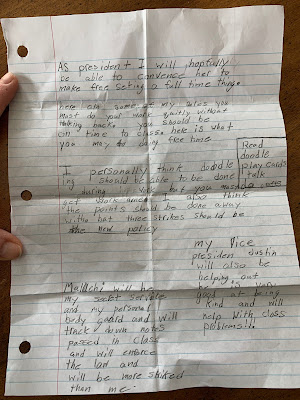 As president I will hopfully
be able to convence her to
make free seting a full time thing.
here are some of my rules you
must do your work quitly without
talking back, you should be
on time to class. here is what
you may do during free time
Read
doodle
play cards
talk
I personally think doodle
ing should be able to be done
during but you must
get work done! I also think
the points should be done away
with but three strikes should be
the new policy
my Vice
presiden Justin
will also be
helping out
he is very
good at being
kind and will
help with class
problems!
Malachi will be
my secret service
and my personal
body guard and will
track down notes
passed in class
and will enforce
the law and
will be more
than me.